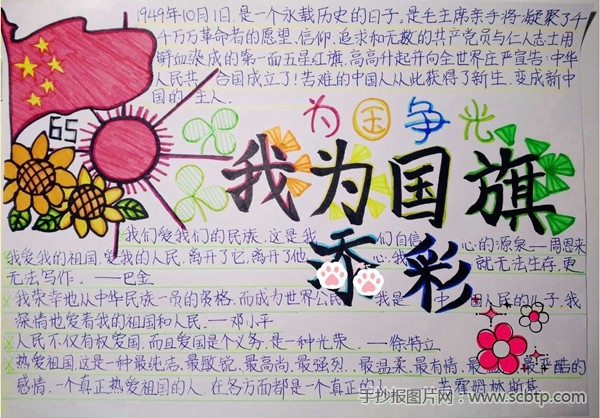 1949年10月1日，是一个永载历史的日子，是毛主席亲手将凝聚了千
千万万革命者的愿望、信仰、追求和无数的共产党员与仁人志士用
鲜血染成的第一面五星红旗，高高升起并向全世界庄严宣告：中华
人民共 合国成立了！苦难的中国人从此获得了新生，变成新中
国的 主人.
65
为国争光
我为国旗
添彩
我们爱我们的民族，这是我 们自信 心的源泉——周恩来
我爱我的祖国，爱我的人民，离开了它，离开了他 心我 就无法生存，更
无法写作。——巴金
我荣幸地从中华民族一员的资格，而成为世界公民 我是 中 国人民的儿子，我
深情地爱着我的祖国和人民。——邓小平
人民不仅有权爱国，而且爱国是个义务，是一种光荣。——徐特立
热爱祖国，这是一种最纯洁、最敏锐、最高尚、最强烈、最温柔、最有情、最 最严酷的
感情。一个真正热爱祖国的人，在各方面都是一个真正的 苏霍姆林斯基
手抄报图片网：www.scbtp.com